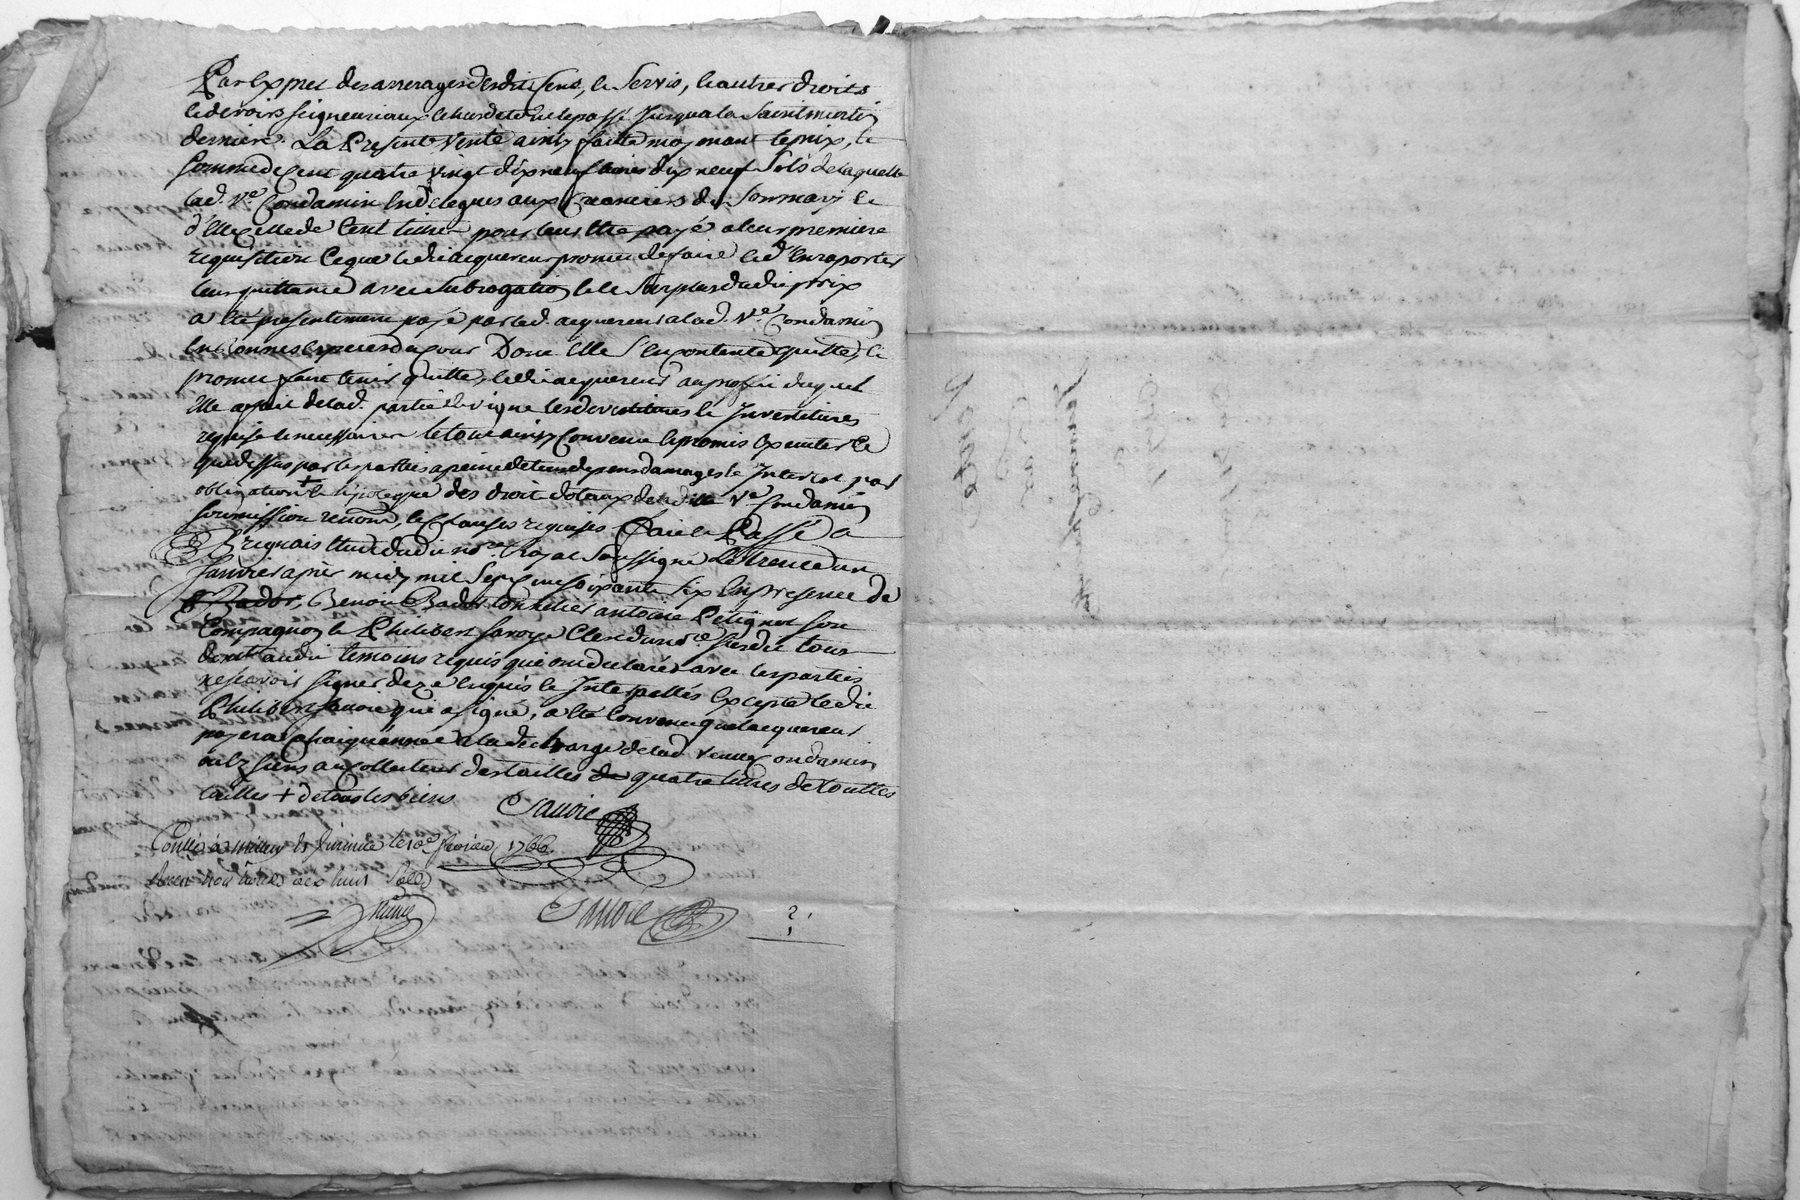 Par Expret des arrerages desdits sens, et servis, et autres droits
et devoirs seigneuriaux et du tout le passé jusqu'a la Saint martin
derniere. La Presente Vente ainsy faitte moyenant le prix, et
somme de Cent quatre vingt dix neuf livres dix neuf sols de laquelle
lad. Ve Condamin En delegue aux Creanciers de son mary et
d'Elle celle de Cent livres pour leur Etre payé a leur premiere
requisition Ce que ledit acquereur promet de faire et d'En raporter
leur quittance avec subrogation et le surplus dudit prix
a Eté presentement payé par led. acquereur a lad. Ve Condamin
En bonnes Especes du cour Dont Elle s'En contente quitte, et
promet faire tenir quitte, ledit acquereur au proffit duquel
Elle a fait de lad. partie de vigne les devetitures et Investitures
requise et necessaires le tout ainsy Convenu et promis Executer Ce
que dessus par les parties a peine de tous depens damages et Interest par
obligation + et hipoteque des droit dotaux de ladite Ve Condamin
soumission renon, et Clauses requises Fait et Passé a
Bregnais Etude dudit nore Royal soussigné Le trente un
Janvier apres midy mil sept cent soixante six En presence de
Bador, Benoit Bador tonnelier antoine Petignot son
Compagnon et Philibert Savoye Clerc dud nore susdit tous
temoins requis qui ont declarés avec les parties
ne scavoir signer de ce Enquis et Interpellés Excepté ledit
Philibert Savoie qui a signé, a Eté Convenu que lacquereur
payera Chaque année a la decharge de lad veuve Condamin
ou les siens au collecteur des tailles de quatre livres de touttes
tailles + de tous les biens
Savoie
Conllé a le 10e fevrier 1766.
Reçu trois livres dix huit sols
Savoie